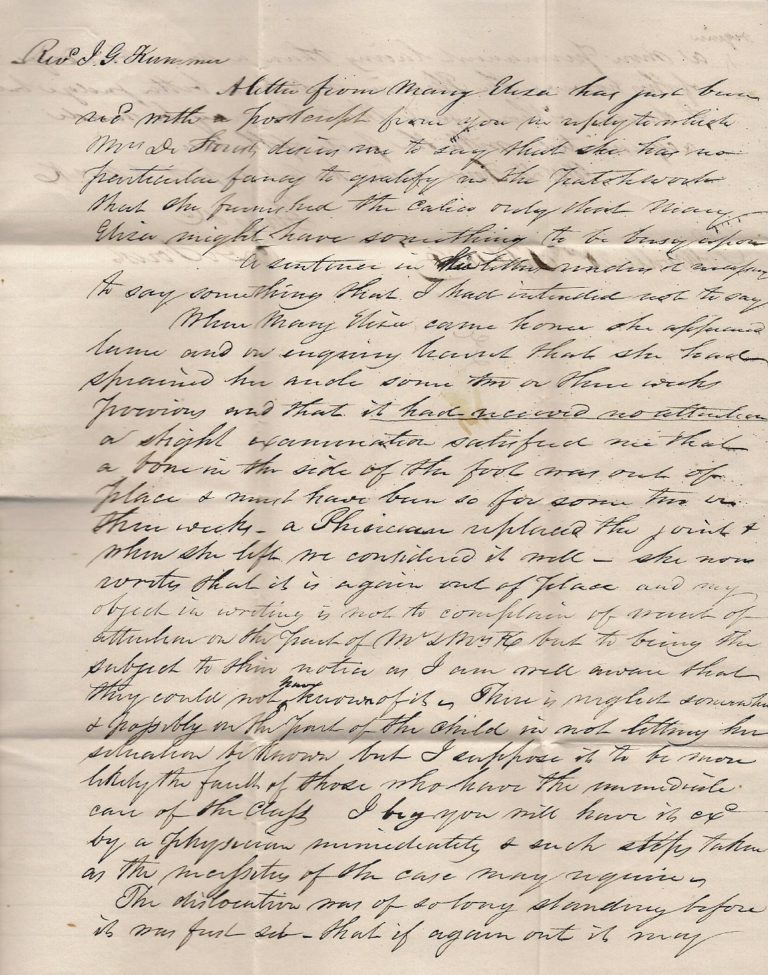 Revd J. G. Kummer
A letter from Mary Eliza has just been
recd with a postscript from you in reply to which
Mrs De desires me to say that she has no
particular fancy to gratify in the patchwork
that she furnished the calico only that Mary
Eliza might have something to be busy upon
A sentence in the letter renders it necessary
to say something that I had intended not to say
When Mary Eliza came home she appeared
lame and on enquiry learnt that she had
sprained her ancle some two or three weeks
previous and that it had received no attention
a slight examination satisfied me that
a bone in the side of the foot was out of
place & must have been so for some two or
three weeks – a Phisician replaced the joint &
when she left we considered it well – she now
writes that it is again out of place and my
object in writing is not to complain of want of
attention on the part of Mr & Mrs K but to bring the
subject to their notice as I am well aware that
they could not have known of it – There is neglect somewhere
& possibly on the part of the child in not letting her
situation be known but I suppose it to be more
likely the fault of those who have the immediate
care of the Class I beg you will have it exd
by a physician immediately & such steps taken
as the necessities of the case may require –
The dislocation was of so long standing before
it was first set – that if again out it may